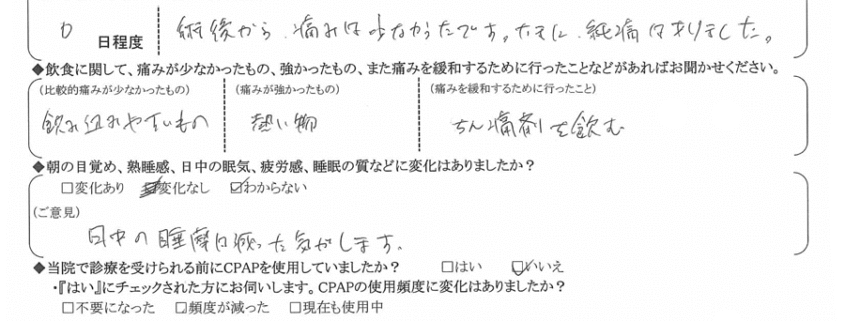 0 日程度 術後から、痛みは少なかったです。たまに、鈍痛はありました。
◆飲食に関して、痛みが少なかったもの、強かったもの、また痛みを緩和するために行ったことなどがあればお聞かせください。
(比較的痛みが少なかったもの) (痛みが強かったもの) (痛みを緩和するために行ったこと)
飲み込みやすいもの 熱い物 ちん痛剤を飲む
◆朝の目覚め、熟睡感、日中の眠気、疲労感、睡眠の質などに変化はありましたか？
□変化あり ☑変化なし ☑わからない
(ご意見)
日中の睡魔は減った気がします。
◆当院で診療を受けられる前にCPAPを使用していましたか？ □はい ☑いいえ
・『はい』にチェックされた方にお伺いします。CPAPの使用頻度に変化はありましたか？
□不要になった □頻度が減った □現在も使用中